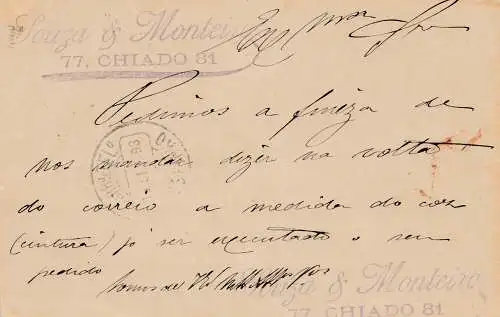 Souza & Monteiro
77, CHIADO 81
Exmo Snr
Pedimos a fineza de
nos mandar dizer na volta
do correio a medida do coz
(cintura) p.ª ser executado o seu
pedido
Somos de V.
Souza & Monteiro
77, CHIADO 81